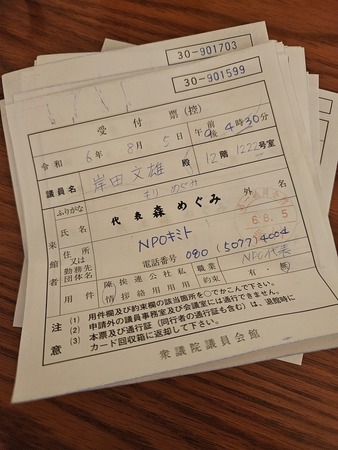 30-901703
30-901599
受付票(控)
令和 6年 8月 5日 午前後 4時30分
議員名 岸田文雄 殿 12階 1222号室
ふりがな もり めぐみ
来館者
氏名 代表 森めぐみ 外 名
住所又は勤務先団体名 NPOキミト
電話番号 080 (5077) 4004
用件 陳情 挨拶 連絡 公用 私用 職業 NPO代表
約束 有・無
6.8.5
注意
(1) 用件欄及び約束欄の該当箇所を○でかこんで下さい。
(2) 申請外の議員事務室及び会議室には通行できません。
(3) 本票及び通行証(同行者の通行証も含む)は、退館時にカード回収箱に返却して下さい。
衆議院議員会館